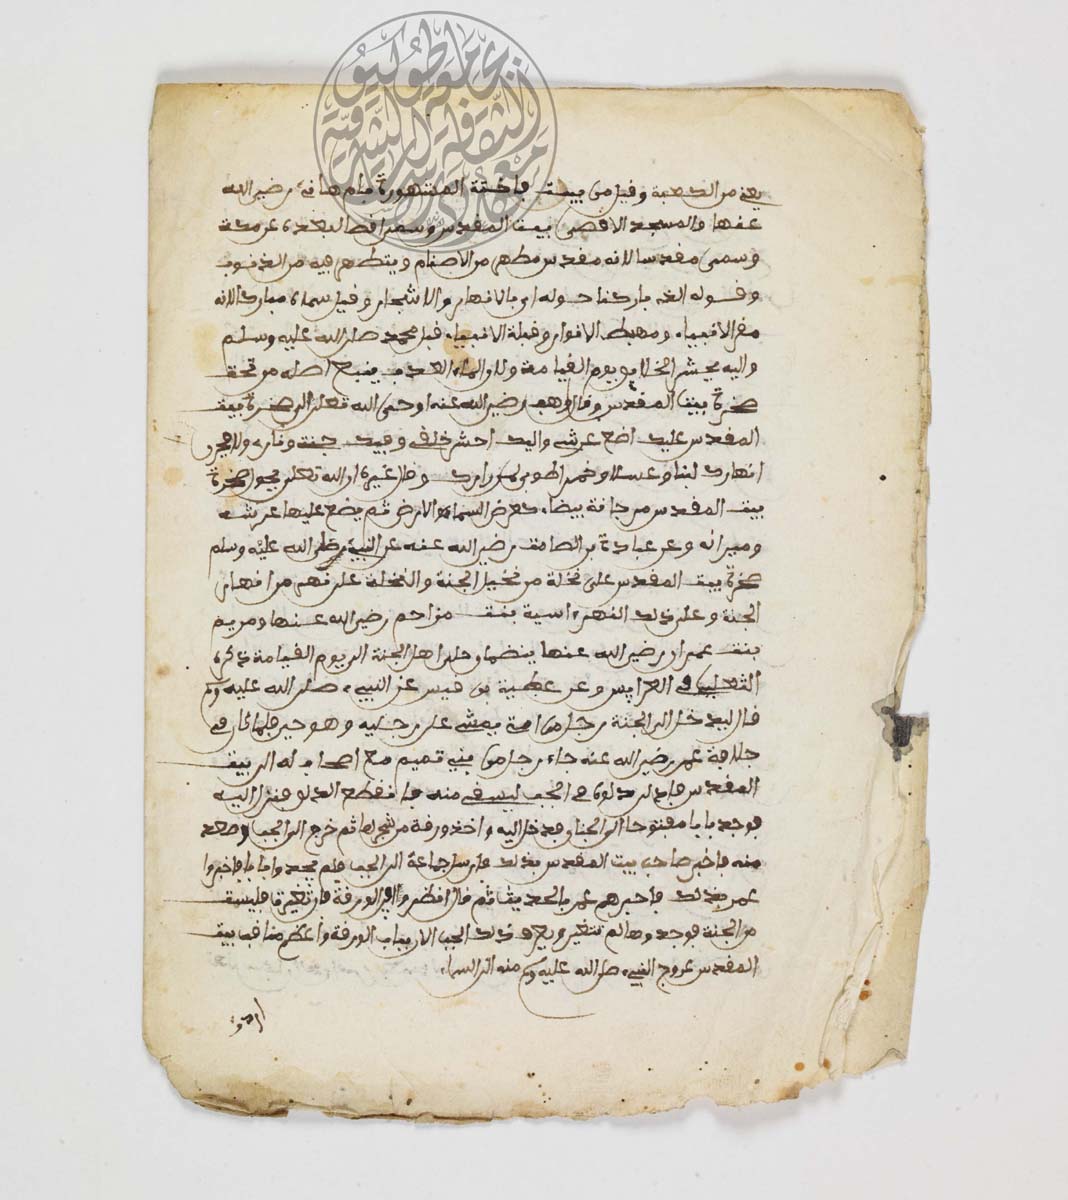 يعني من الكعبة وقيل من بيت فاختة المشهورة بام هانئ رضي الله
عنها والمسجد الاقصى بيت المقدس وسمي اقصا لبعده عن مكة
وسمى مقدسا لانه مقدس مطهر من الاصنام ويتطهر فيه من الذنوب
وقوله الذي باركنا حوله اي بالانهار والاشجار وقيل سماه مباركا لانه
مقر الانبياء ومهبط الانوار وقبلة الانبياء قبل محمد صلى الله عليه وسلم
واليه يحشر الخلايق يوم القيامة وكل الماء العذب ينبع اصله من تحت
صخرة بيت المقدس وقال وهب رضي الله عنه اوحى الله تعلى الى صخرة بيت
المقدس عليك اضع عرشي واليك احشر خلقي وفيك جنتي وناري ولافجرن
انهارك لبنا وعسلا وخمرا طوبى لمن زارك وقال غيره ان الله تعلى يحول صخرة
بيت المقدس مرجانة بيضاء كعرض السماء والارض ثم يضع عليها عرشه
وميزانه وعن عبادة بن الصامت رضي الله عنه عن النبيء صلى الله عليه وسلم
صخرة بيت المقدس على نخلة من نخيل الجنة والنخلة على نهر من انهار
الجنة وعلى ذلك النهر اسية بنت مزاحم رضي الله عنها ومريم
بنت عمران رضي الله عنها ينضمان حلل اهل الجنة الى يوم القيامة ذكره
الثعلبي في العرايس وعن عطية بن قيس عن النبيء صلى الله عليه وسلم
قال ليدخل الى الجنة رجل من امتي يمشي على رجليه وهو حي فلما كان في
خلافة عمر رضي الله عنه جاء رجل من بني تميم مع اصحاب له الى بيت
المقدس فادلى دلوه في الجب ليسقي منه فانقطع الدلو فنزل اليه
فوجد بابا مفتوحا الى الجنان فدخل اليه واخذ ورقة من شجرها ثم خرج الى الجب وصعد
منه فاخبر صاحب بيت المقدس بذلك فارسل جماعة الى الجب فلم يجدوا بابا فاخبروا
عمر بذلك فاخبرهم عمر بالحديث ثم قال انظروا الى الورقة فان تغيرت فليست
من الجنة فوجدوها لم تتغير ويعرف ذلك الجب الان بباب الورقة واعظم مناقب بيت
المقدس عروج النبيء صلى الله عليه وسلم منه الى السماء